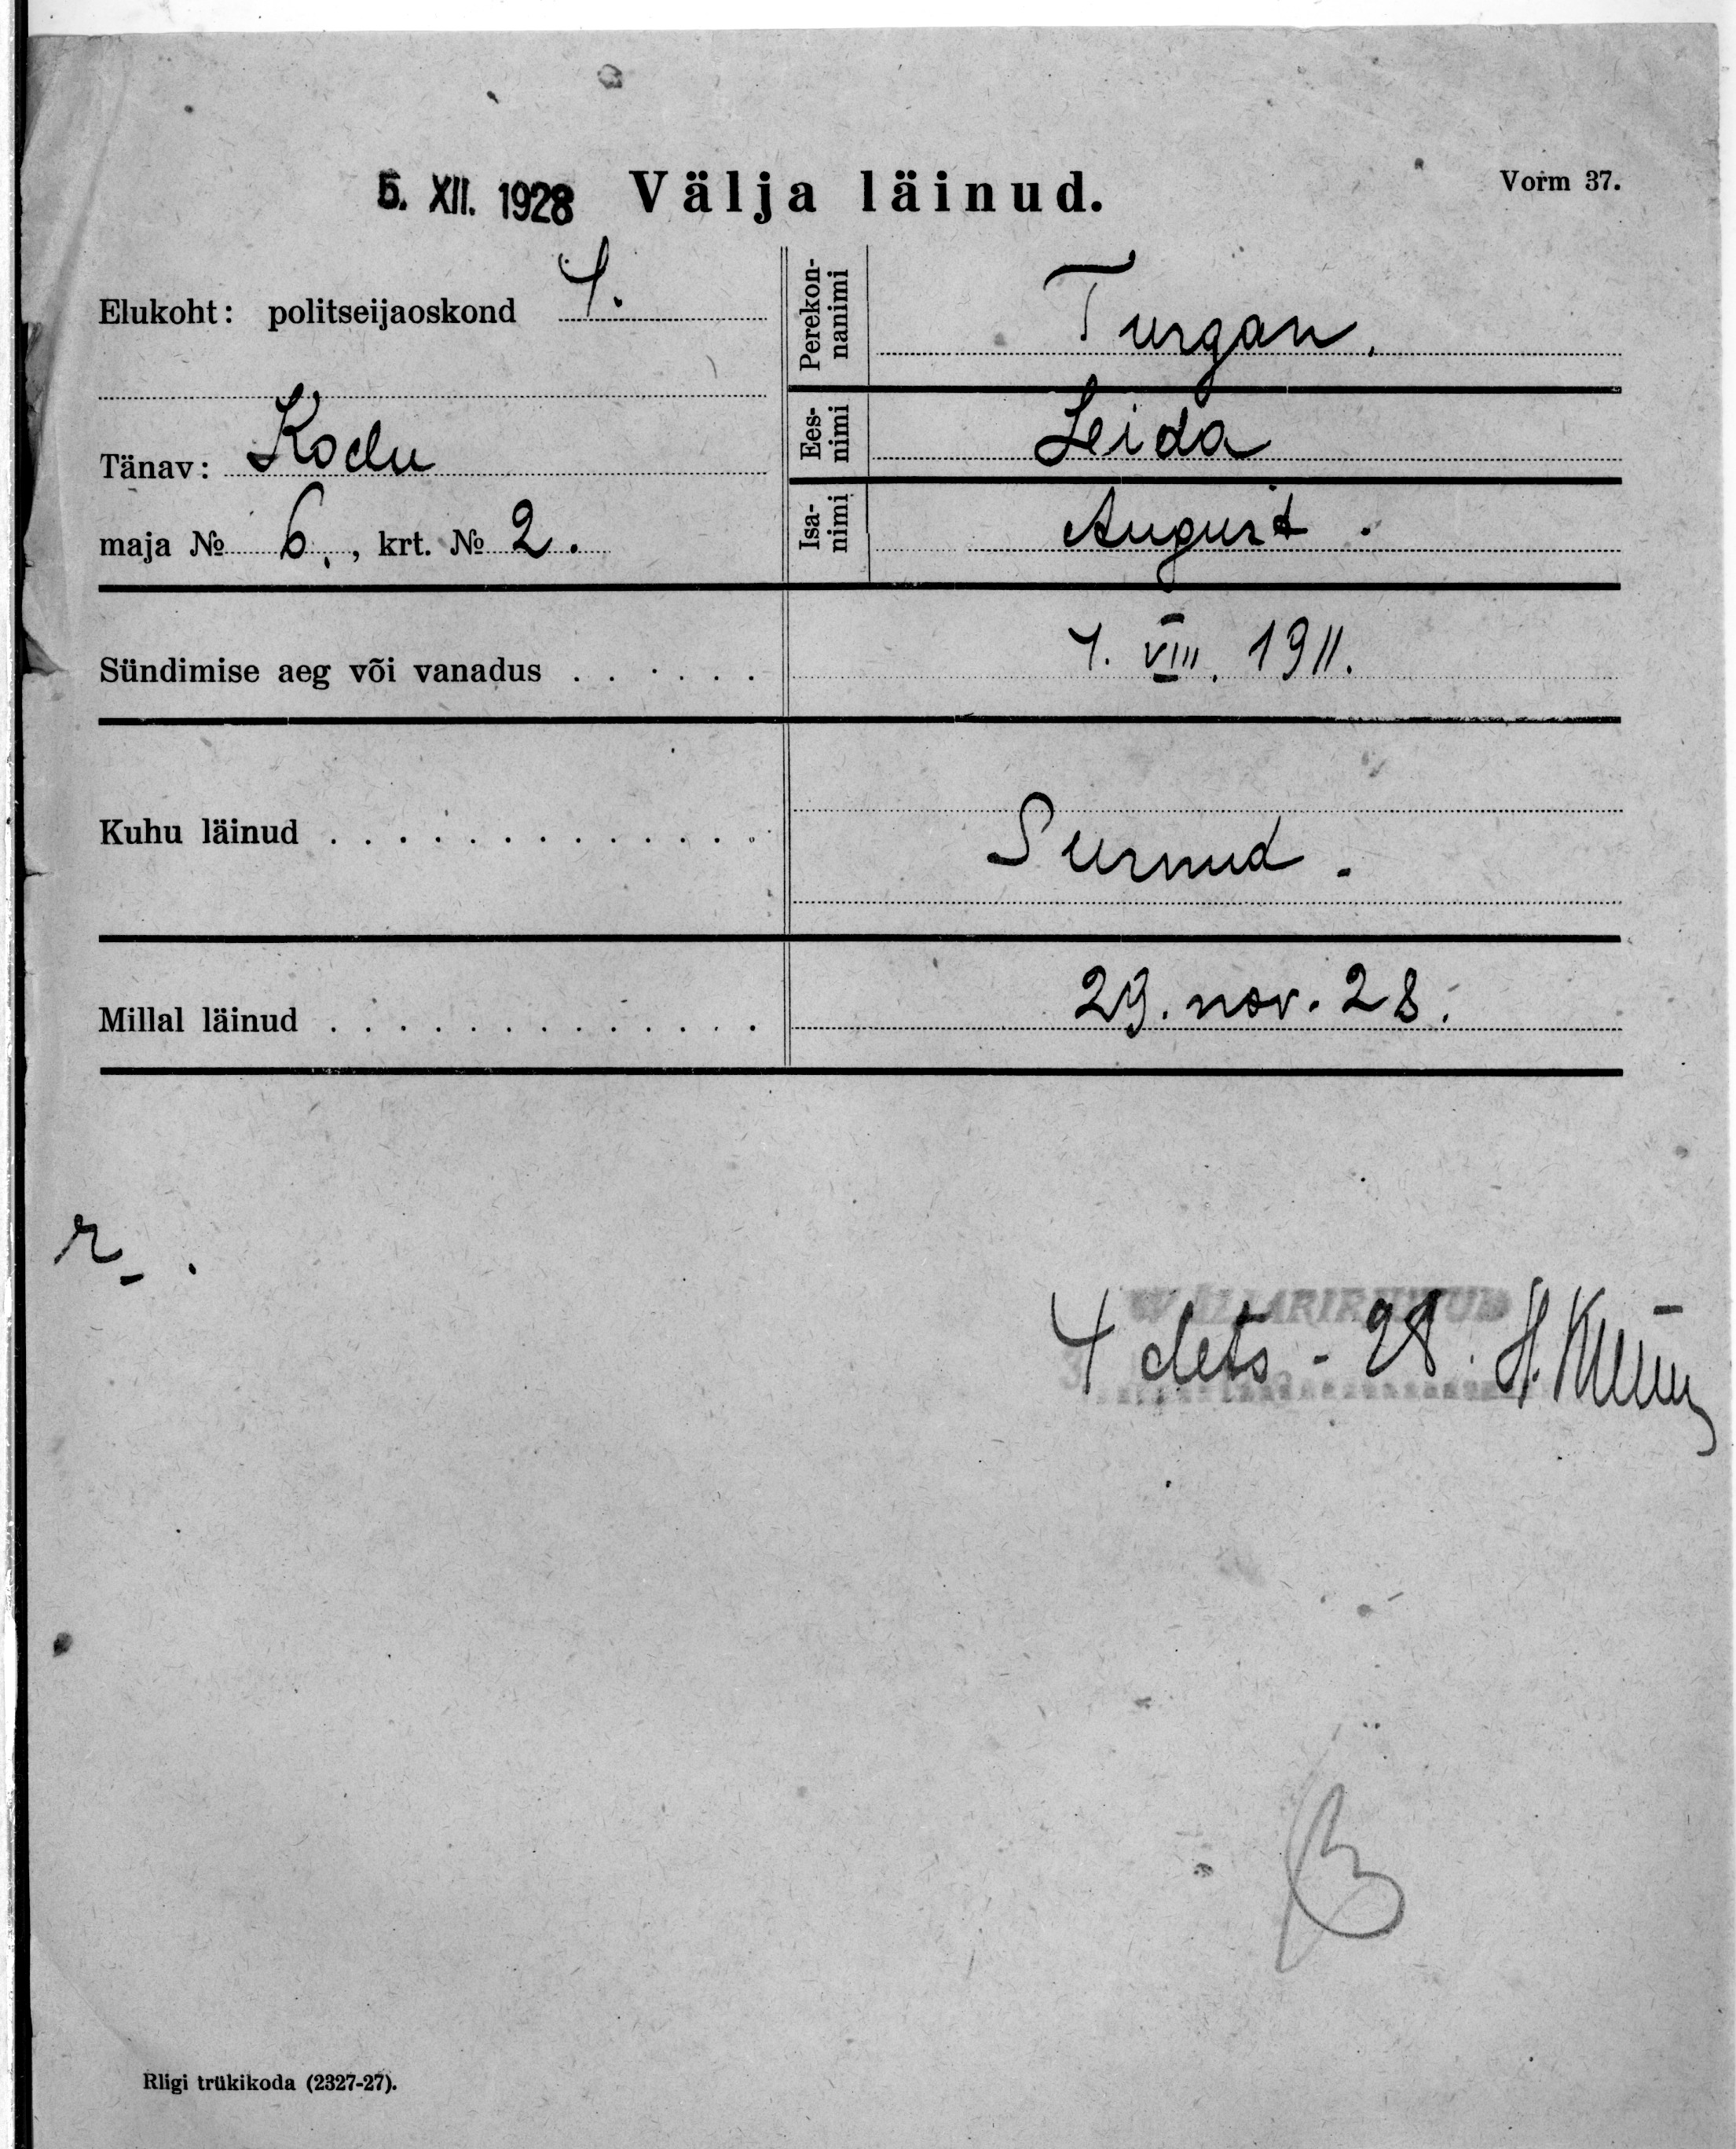 5. XII. 1928 Välja läinud.
Vorm 37.
Elukoht: politseijaoskond 4.
Tänav: Kodu
maja № 6., krt. № 2.
Perekonnanimi Turgan.
Eesnimi Leida
Isanimi August.
Sündimise aeg või vanadus 4. VIII. 1911.
Kuhu läinud Surnud.
Millal läinud 29. nov. 28.
r.
4 dets - 28. H.
Riigi trükikoda (2327-27).